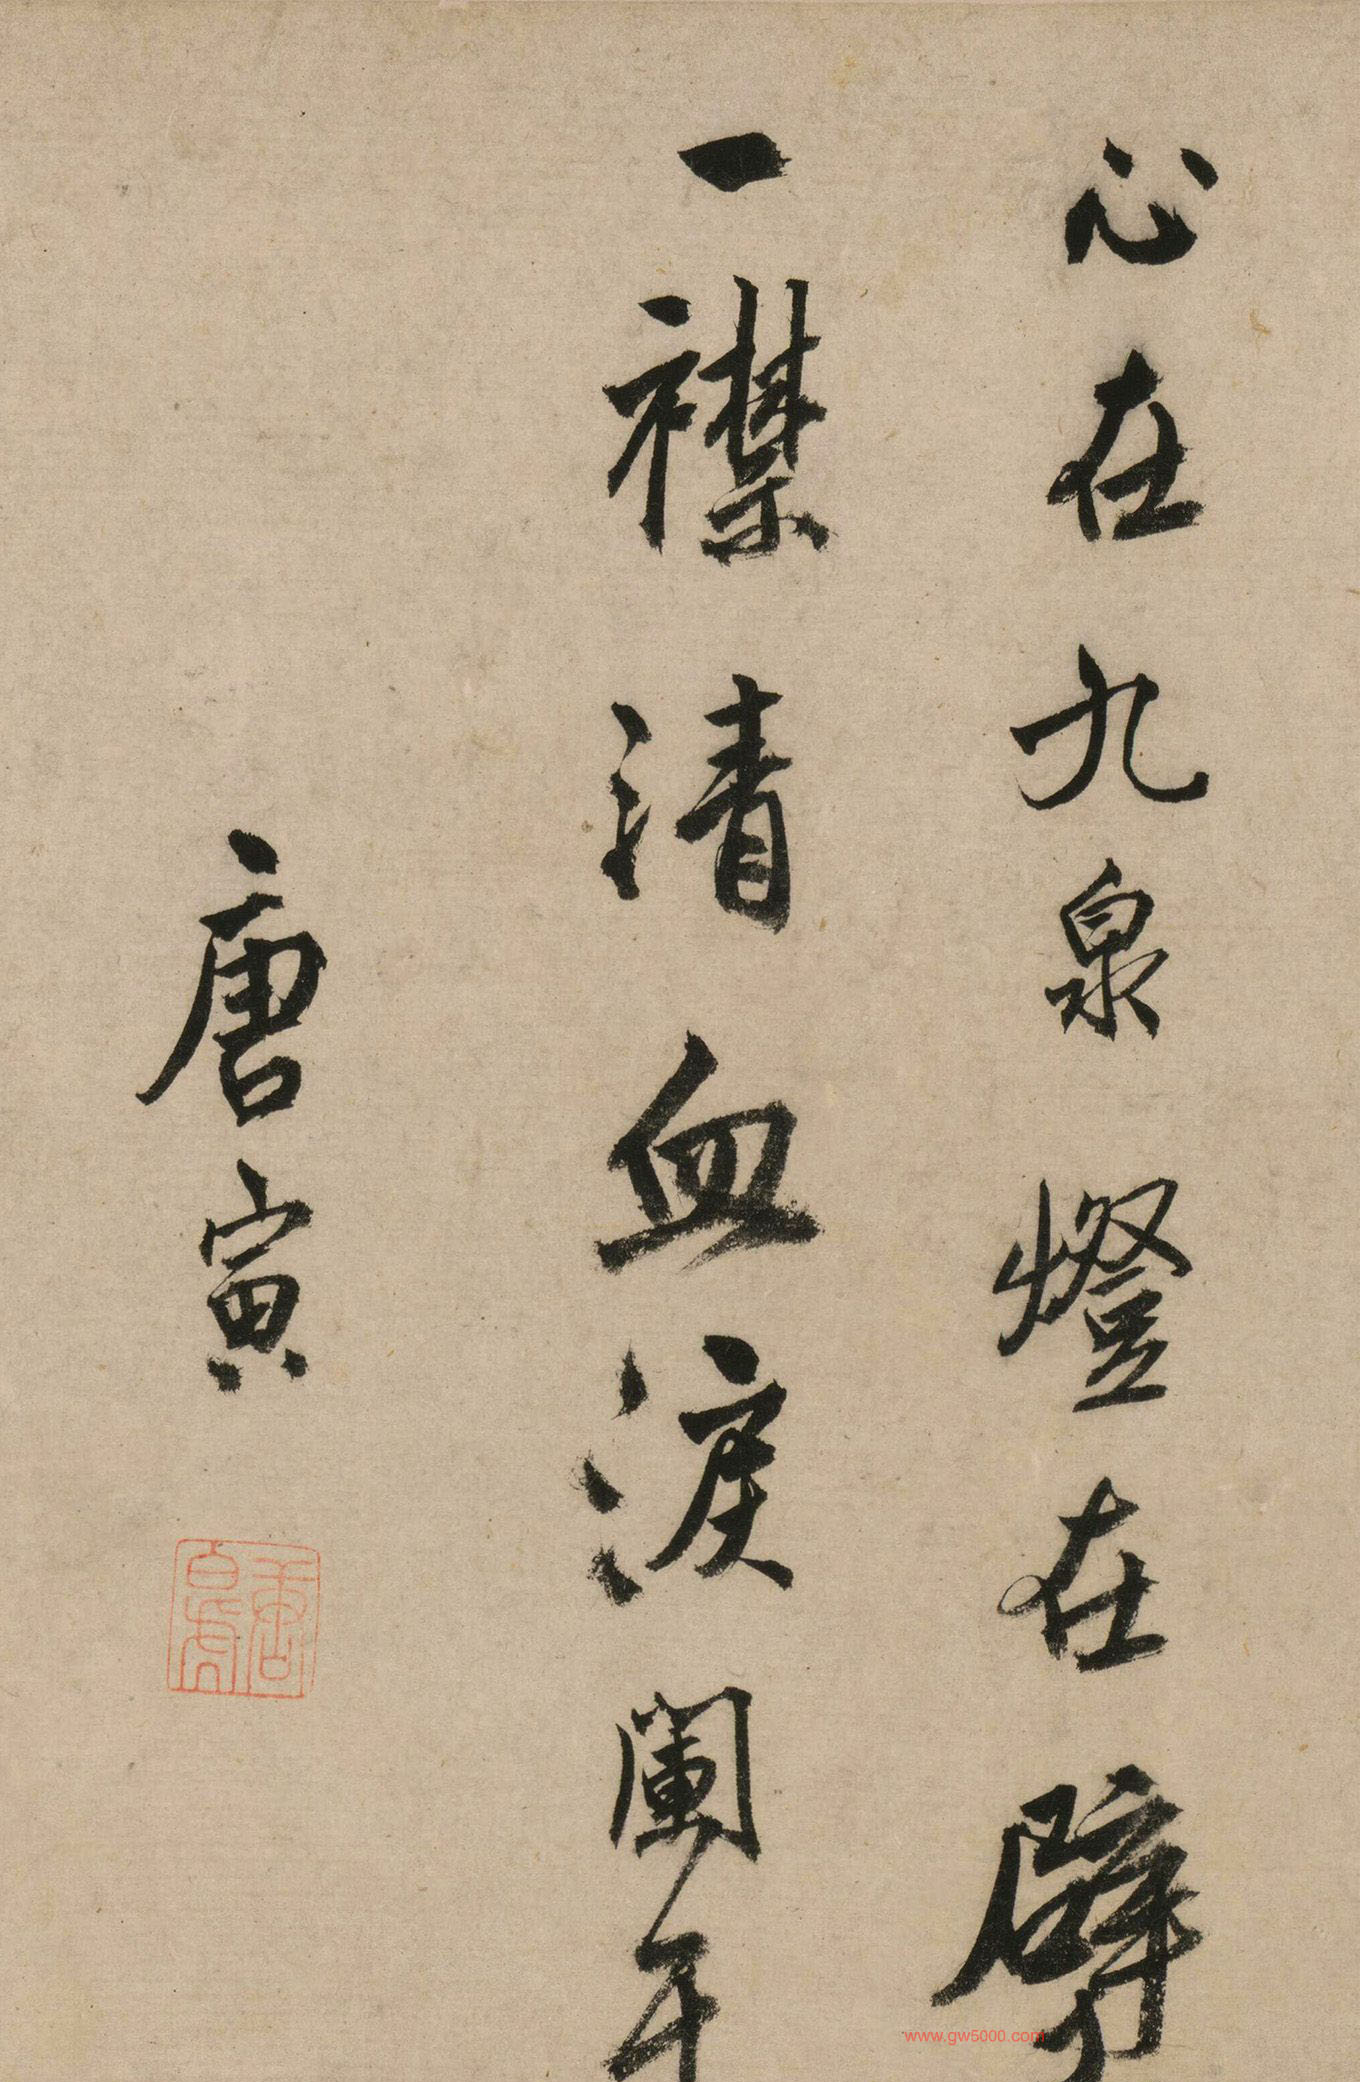 心在九泉燈在臂
一襟清血淚闌干
唐寅
唐白虎
www.gw5000.com